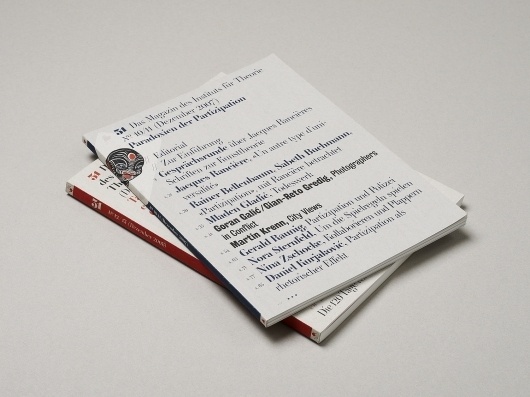 31 Das Magazin des Instituts für Theorie
N° 10/11 (Dezember 2007)
Paradoxien der Partizipation
Editorial
Zur Einführung
Gesprächsrunde über Jacques Rancières
Schriften zur Kunsttheorie
Jacques Rancière, «Un autre type d'uni-
versalité»
Rainer Bellenbaum, Sabeth Buchmann,
«Partizipation» mit Rancière betrachtet
Mladen Gladić, Todeswerk
Goran Galić/Gian-Reto Gredig, Photographers
in Conflict
Martin Krenn, City Views
Gerald Raunig, Partizipation und Polizei
Nora Sternfeld, Um die Spielregeln spielen
Nina Zschocke, Kollaborieren und Plappern
Daniel Kurjaković, Partizipation als
rhetorischer Effekt
...
31
Die 120 Tage